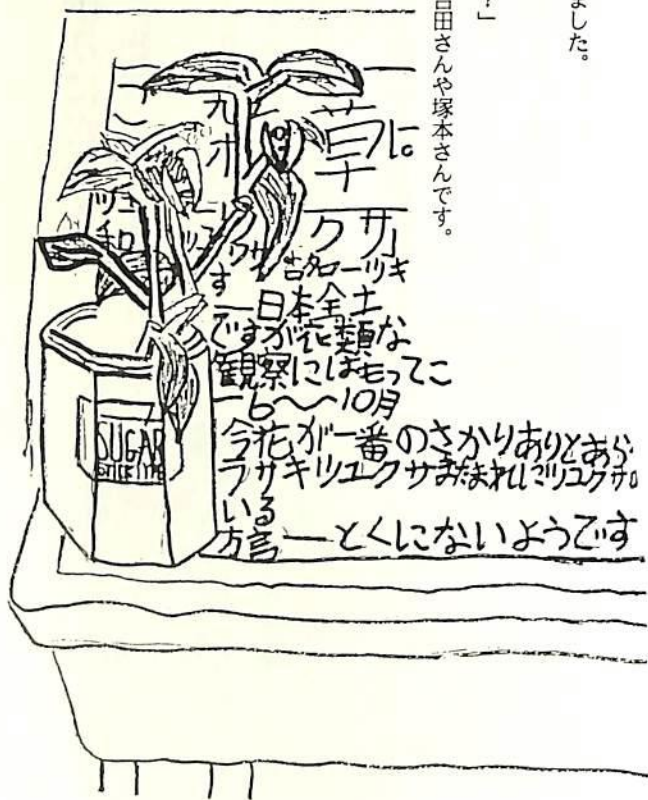 ました。
？」
吉田さんや塚本さんです。
草に。
クサ」
す
古名ーツキ
ー日本全土
ですが花類な
観察にはもってこ
ー6〜10月
今花が一番のさかりありとあら
ラサキツユクサまたまれにツユクサ。
いる
方言ーとくにないようです
SUGAR
STICK TYPE